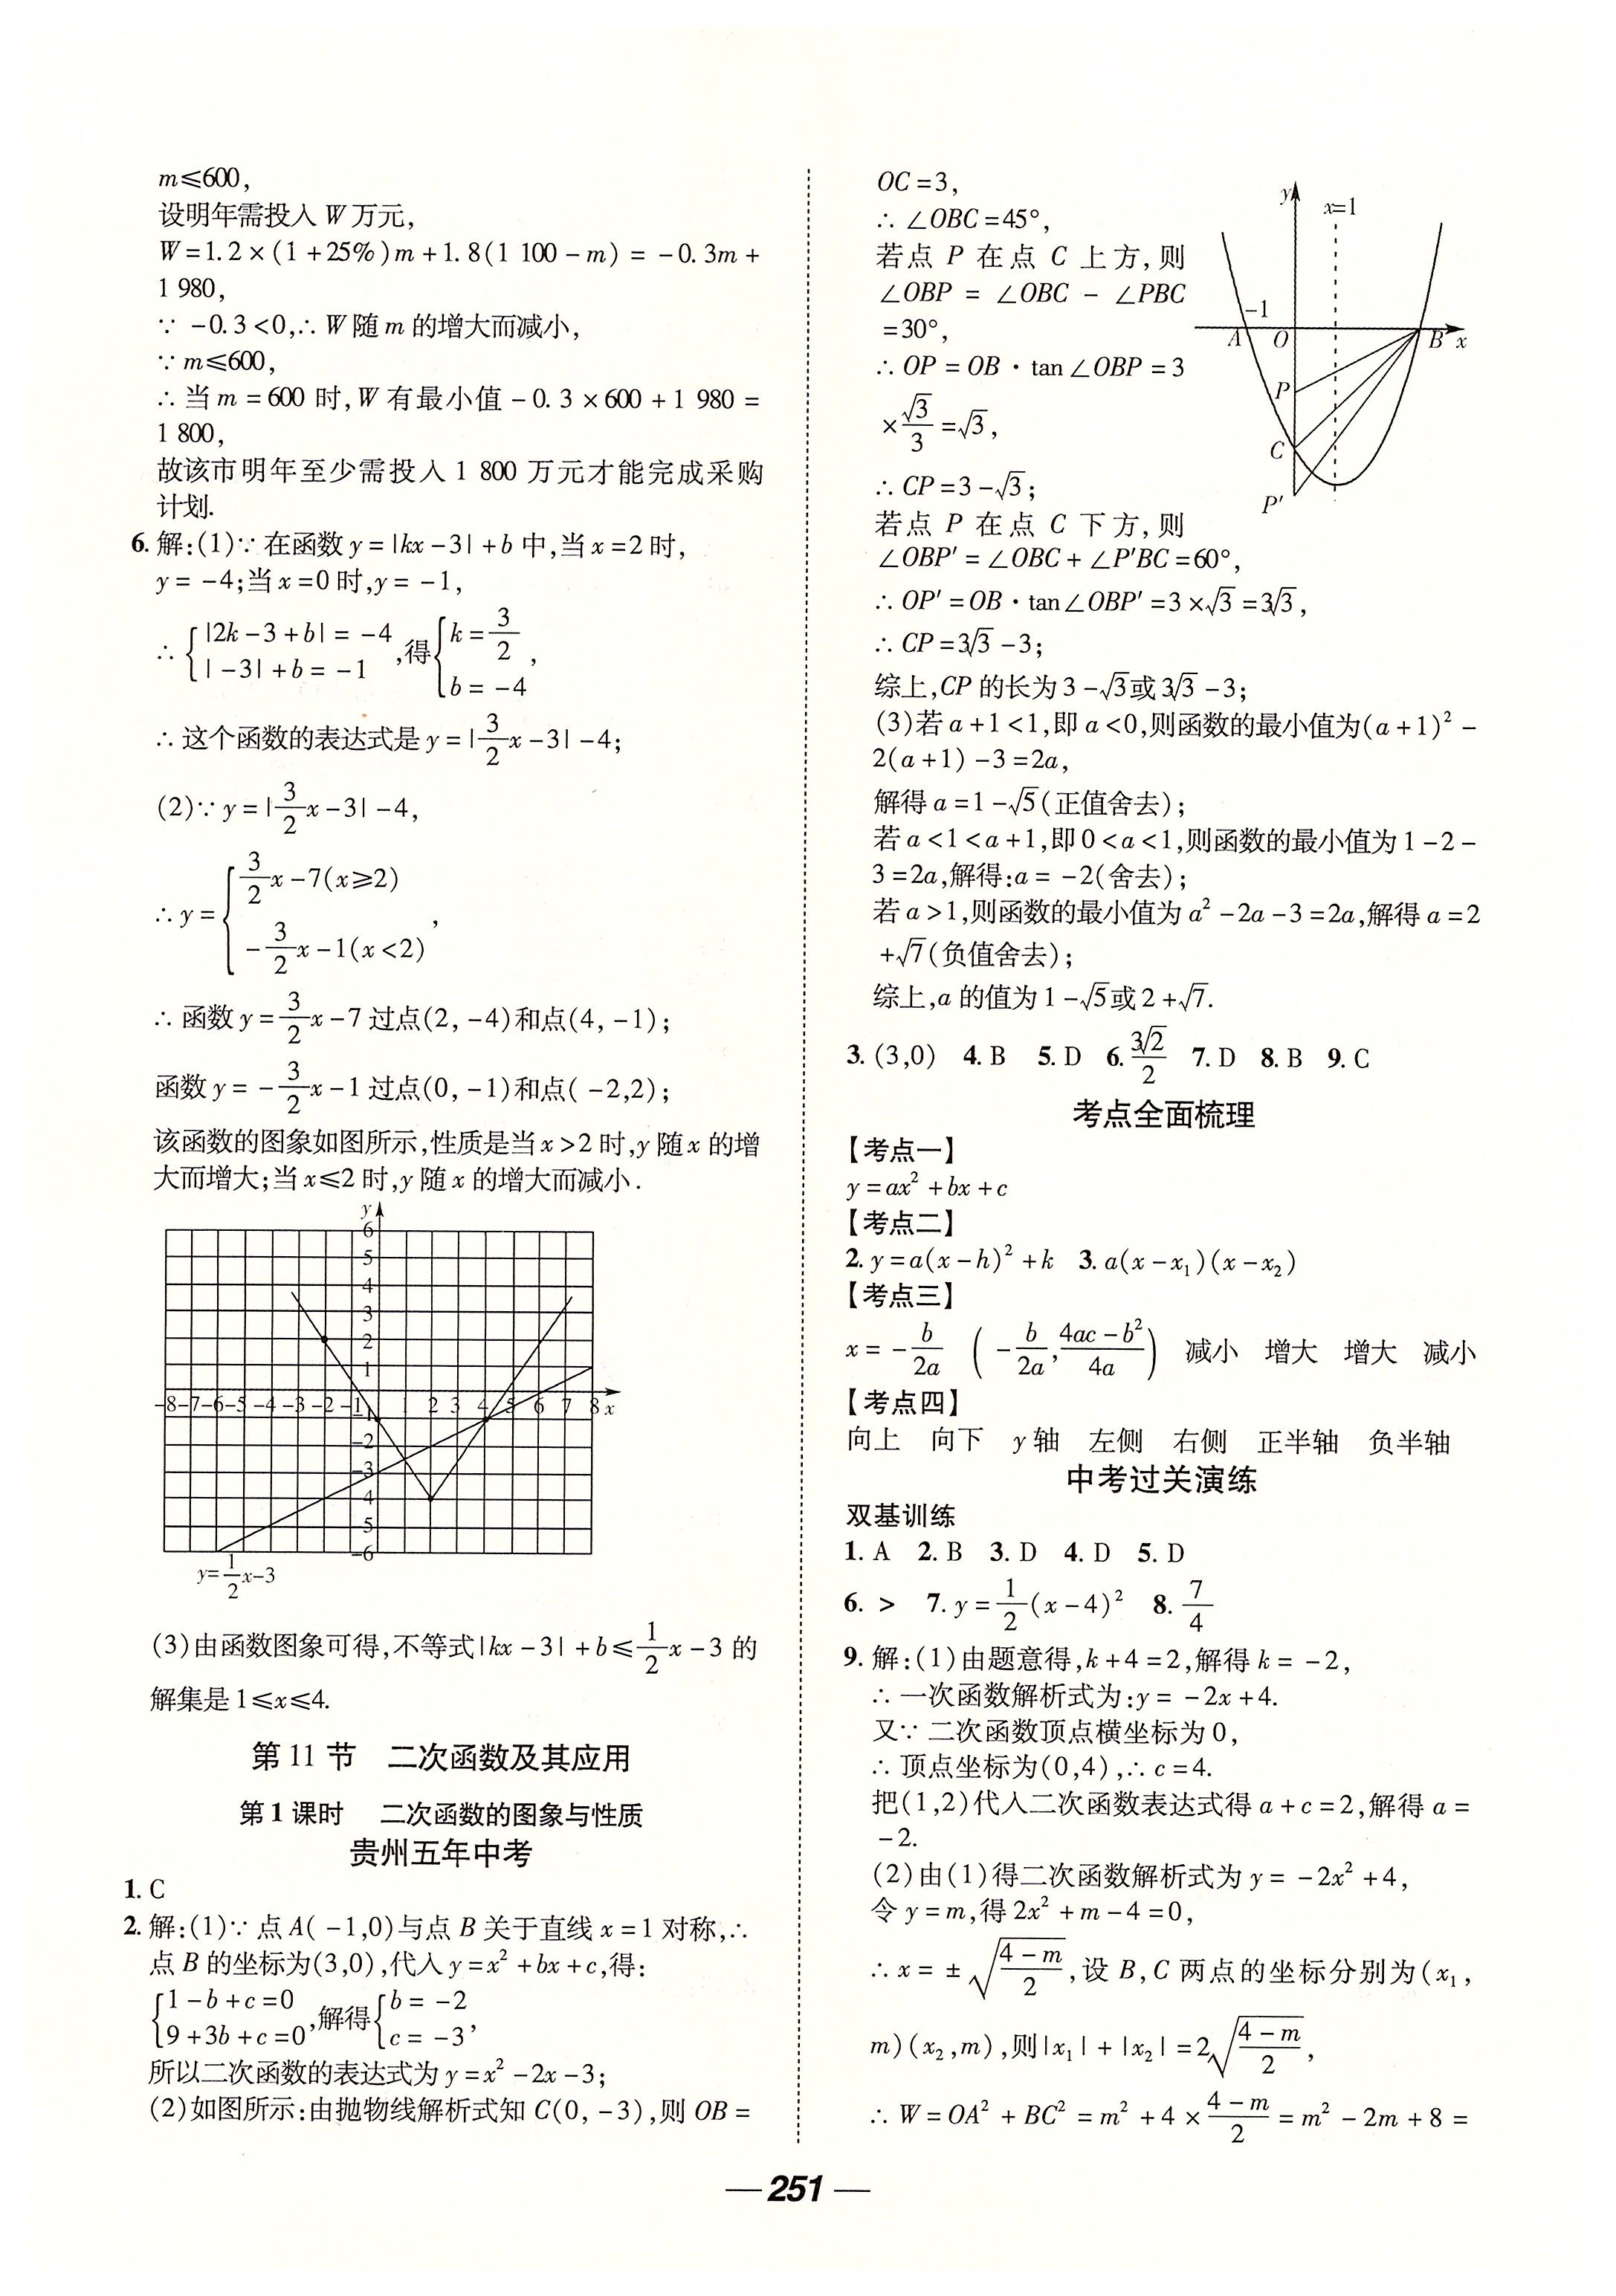 m≤600,
设明年需投入 W 万元,
W=1.2×(1+25%)m+1.8(1 100-m) = -0.3m+
1 980,
∵ -0.3<0,∴W随m的增大而减小,
∵m≤600,
∴当m=600时,W有最小值-0.3×600+1 980=
1 800,
故该市明年至少需投入1 800万元才能完成采购
计划.
6. 解:(1)∵在函数y=|kx-3|+b中,当x=2时,
y=-4;当x=0时,y=-1,
∴{|2k-3+b|=-4 |-3|+b=-1 ,得{k=3/2 b=-4 ,
∴这个函数的表达式是y=|3/2x-3|-4;
(2)∵y=|3/2x-3|-4,
∴y={3/2x-7(x≥2) -3/2x-1(x<2) ,
∴函数y=3/2x-7过点(2,-4)和点(4,-1);
函数y=-3/2x-1过点(0,-1)和点(-2,2);
该函数的图象如图所示,性质是当x>2时,y随x的增
大而增大;当x≤2时,y随x的增大而减小.
y
6
5
4
3
2
1
-8-7-6-5-4-3-2-1 2 3 4 5 6 7 8 x
-1
-2
-3
4
-5
-6
y=1/2x-3
(3)由函数图象可得,不等式|kx-3|+b≤1/2x-3的
解集是1≤x≤4.
第 11 节 二次函数及其应用
第 1 课时 二次函数的图象与性质
贵州五年中考
1. C
2. 解:(1)∵点A(-1,0)与点B关于直线x=1对称,∴
点B的坐标为(3,0),代入y=x²+bx+c,得:
{1-b+c=0 9+3b+c=0 ,解得{b=-2 c=-3 ,
所以二次函数的表达式为y=x²-2x-3;
(2)如图所示:由抛物线解析式知C(0,-3),则OB=
OC=3,
∴∠OBC=45°,
若点 P 在点 C 上方,则
∠OBP = ∠OBC - ∠PBC
=30°,
∴OP=OB·tan∠OBP=3
×√3/3=√3,
∴CP=3-√3;
若点 P 在点 C 下方,则
∠OBP'=∠OBC+∠P'BC=60°,
y
x=1
-1
A
O
B
x
P
C
P'
∴OP'=OB·tan∠OBP'=3×√3=3√3,
∴CP=3√3-3;
综上,CP的长为3-√3或3√3-3;
(3)若a+1<1,即a<0,则函数的最小值为(a+1)²-
2(a+1)-3=2a,
解得a=1-√5(正值舍去);
若a<1<a+1,即0<a<1,则函数的最小值为1-2-
3=2a,解得:a=-2(舍去);
若a>1,则函数的最小值为a²-2a-3=2a,解得a=2
+√7(负值舍去);
综上,a的值为1-√5或2+√7.
3. (3,0) 4. B 5. D 6. 3√2/2 7. D 8. B 9. C
考点全面梳理
【考点一】
y=ax²+bx+c
【考点二】
2. y=a(x-h)²+k 3. a(x-x₁)(x-x₂)
【考点三】
x=-b/2a (-b/2a,4ac-b²/4a) 减小 增大 增大 减小
【考点四】
向上 向下 y轴 左侧 右侧 正半轴 负半轴
中考过关演练
双基训练
1. A 2. B 3. D 4. D 5. D
6. > 7. y=1/2(x-4)² 8. 7/4
9. 解:(1)由题意得,k+4=2,解得k=-2,
∴一次函数解析式为:y=-2x+4.
又∵二次函数顶点横坐标为0,
∴顶点坐标为(0,4),∴c=4.
把(1,2)代入二次函数表达式得a+c=2,解得a=
-2.
(2)由(1)得二次函数解析式为y=-2x²+4,
令y=m,得2x²+m-4=0,
∴x=±√(4-m/2),设B,C两点的坐标分别为(x₁,
m)(x₂,m),则|x₁|+|x₂|=2√(4-m/2),
∴W=OA²+BC²=m²+4×4-m/2=m²-2m+8=
—251—